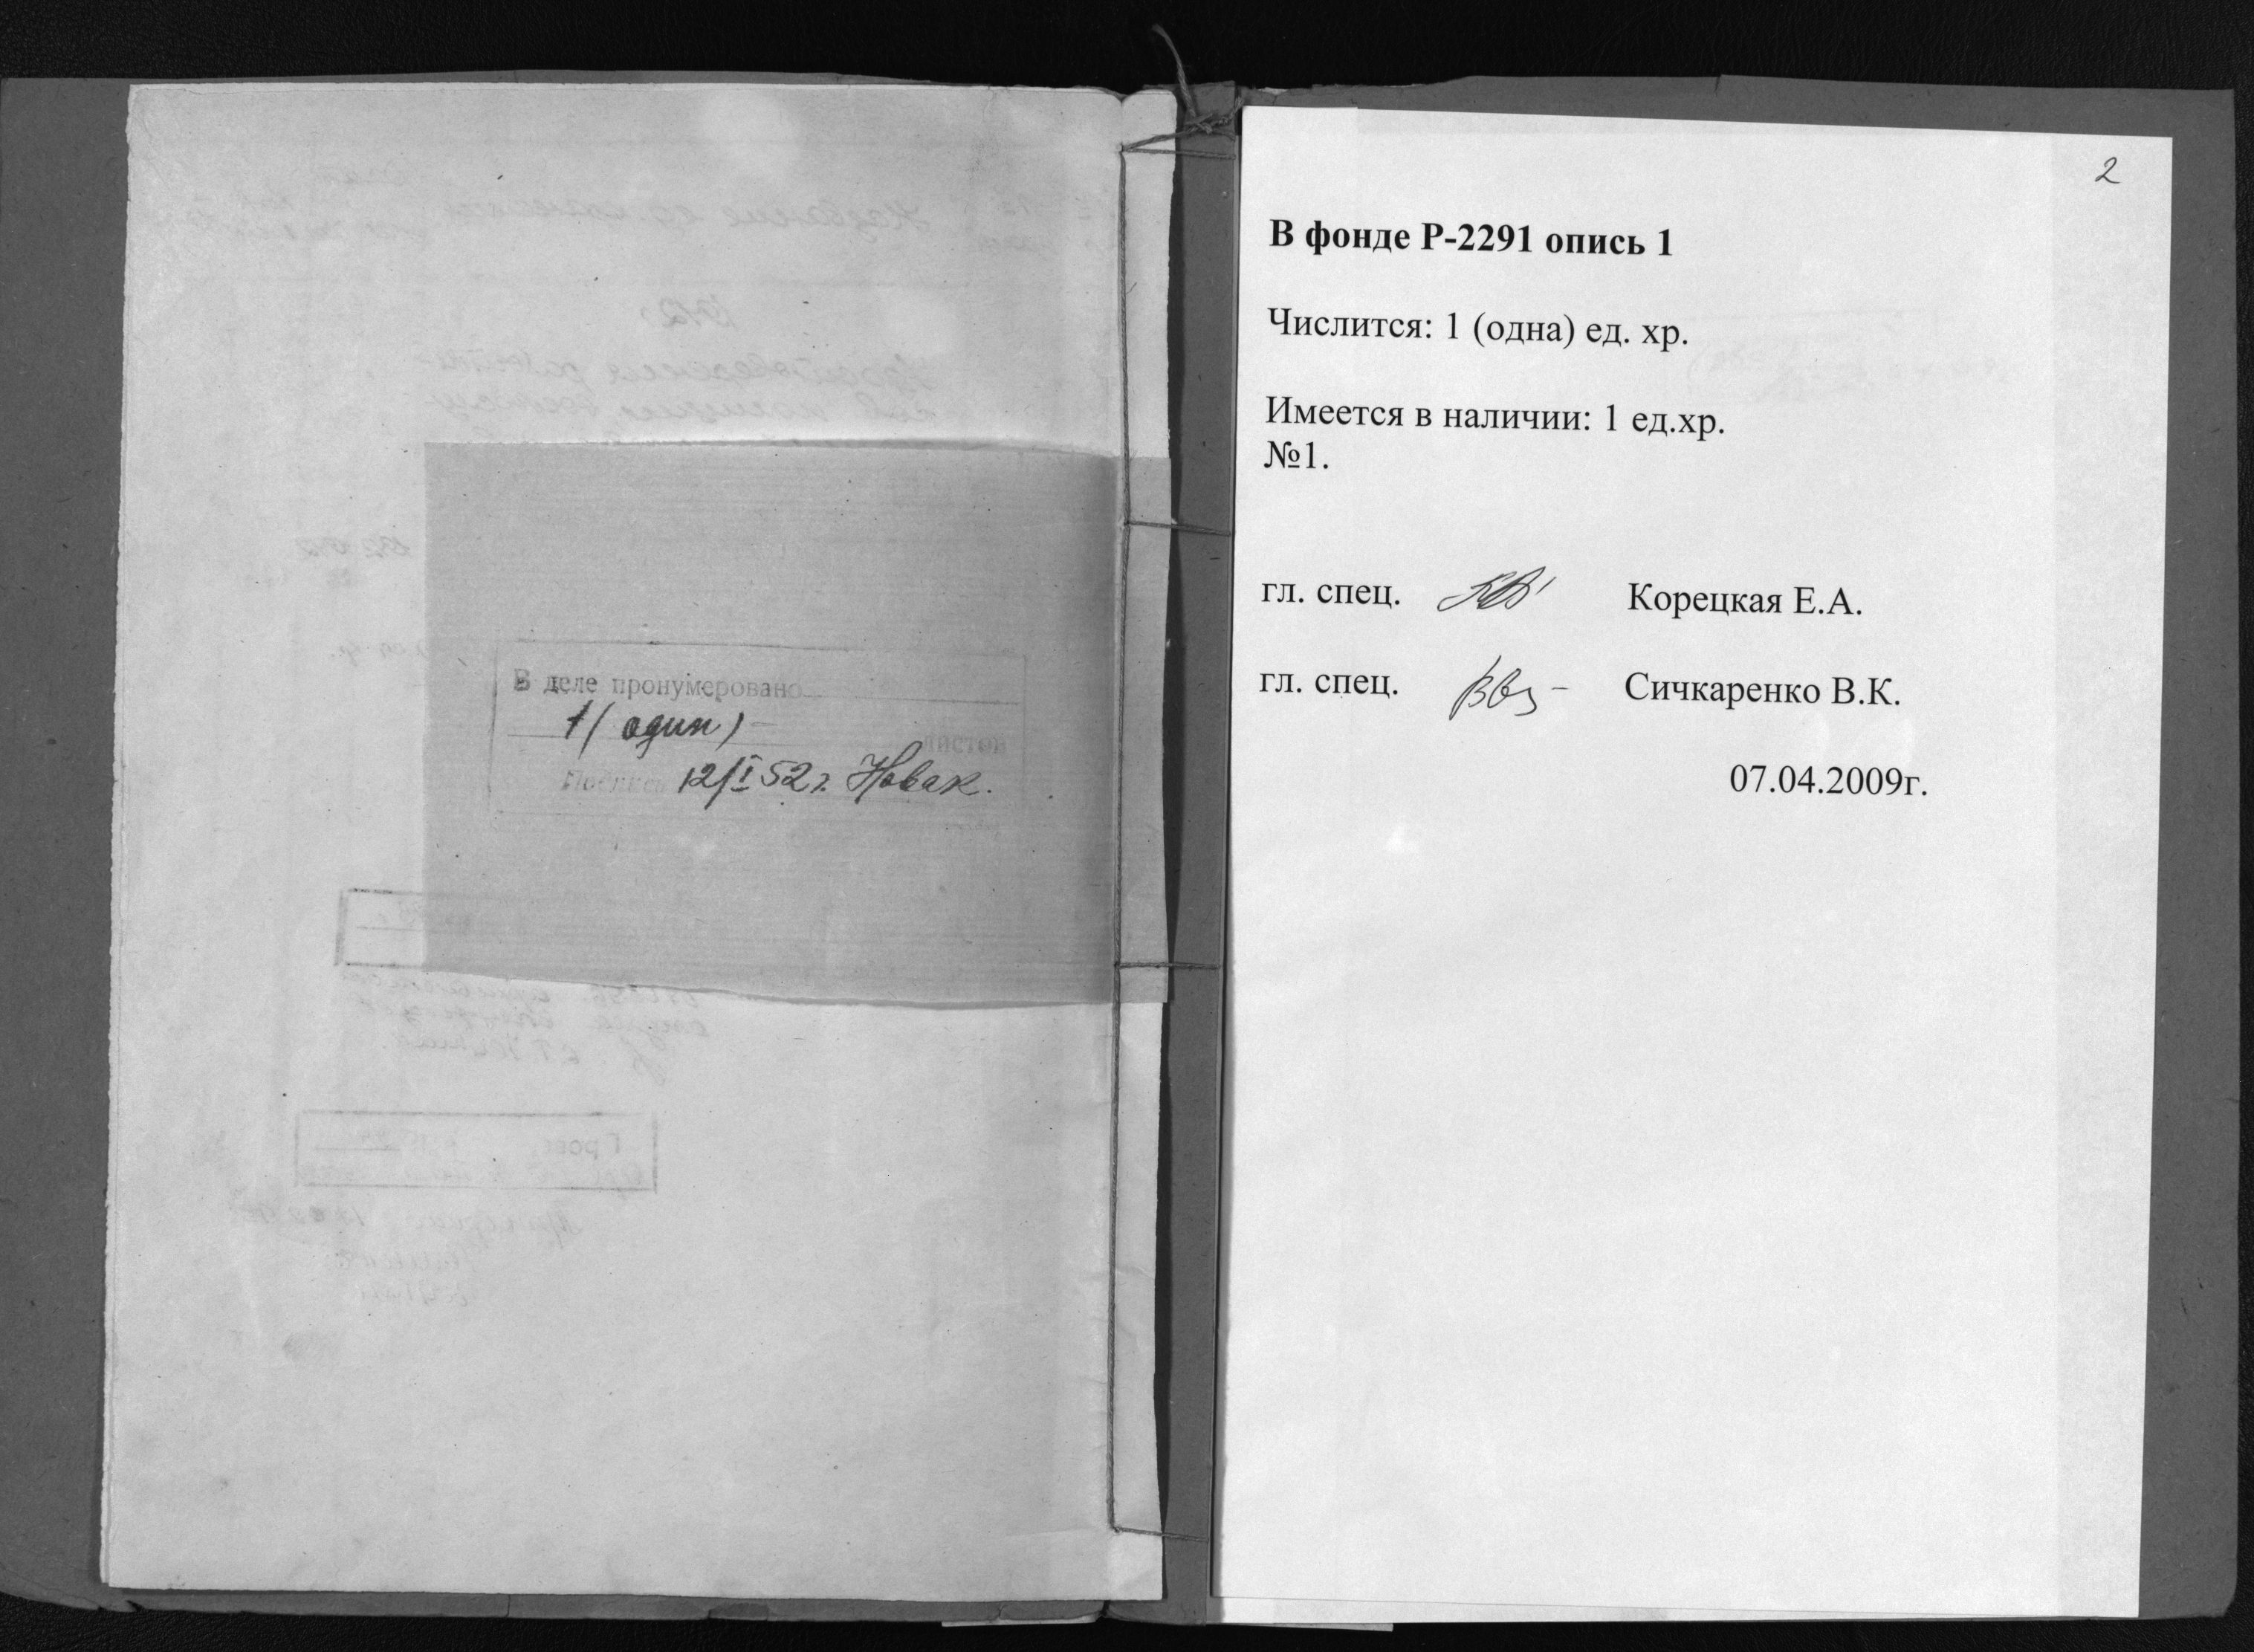 В деле пронумеровано
1 (один)
листов
Подпись 12/I 52 г. Новак.
2
В фонде Р-2291 опись 1
Числится: 1 (одна) ед. хр.
Имеется в наличии: 1 ед.хр.
№1.
гл. спец. Корецкая Е.А.
гл. спец. Сичкаренко В.К.
07.04.2009г.